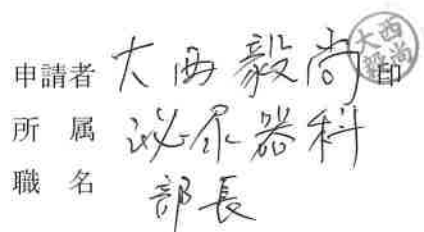 申請者 大西毅尚 印
大西毅尚
所属 泌尿器科
職名 部長